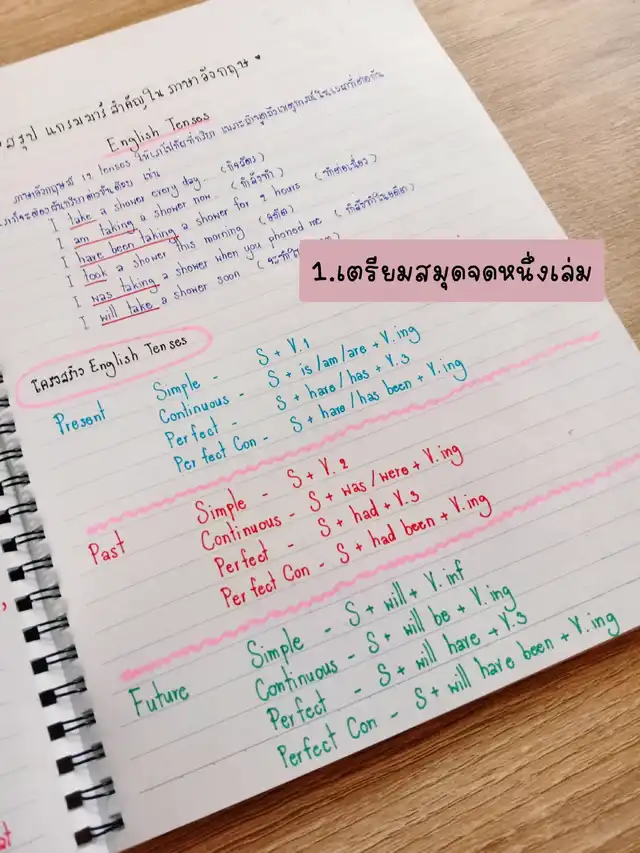 สรุป แกรมมาร์ สำคัญ ใน ภาษาอังกฤษ
English Tenses
ภาษาอังกฤษมี 12 tenses
I take a shower every day... (กิจวัตร)
I am taking a shower now... (กำลังทำ)
I have been taking a shower for 2 hours (ทำต่อเนื่อง)
I took a shower this morning (อดีต)
I was taking a shower when you phoned me (กำลังทำในอดีต)
I will take a shower soon
1.เตรียมสมุดจดหนึ่งเล่ม
โครงสร้าง English Tenses
Present Simple - S + V.1
Continuous - S + is/am/are + V.ing
Perfect - S + have/has + V.3
Perfect Con - S + have/has been + V.ing
Past Simple - S + V.2
Continuous - S + was/were + V.ing
Perfect - S + had + V.3
Perfect Con - S + had been + V.ing
Future Simple - S + will + V.inf
Continuous - S + will be + V.ing
Perfect - S + will have + V.3
Perfect Con - S + will have been + V.ing